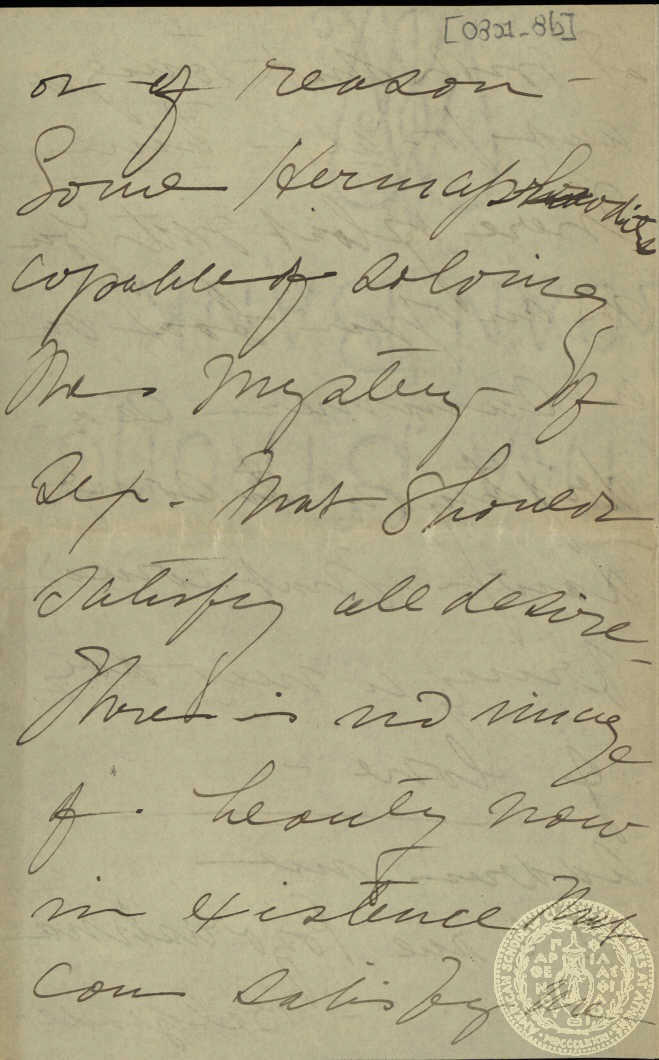 [0321-8b]
or of reason -
Some Hermaphrodites
capable of solving
the mystery of
sex - that should
satisfy all desire -
There is no image
of beauty now
in existence that
can satisfy the